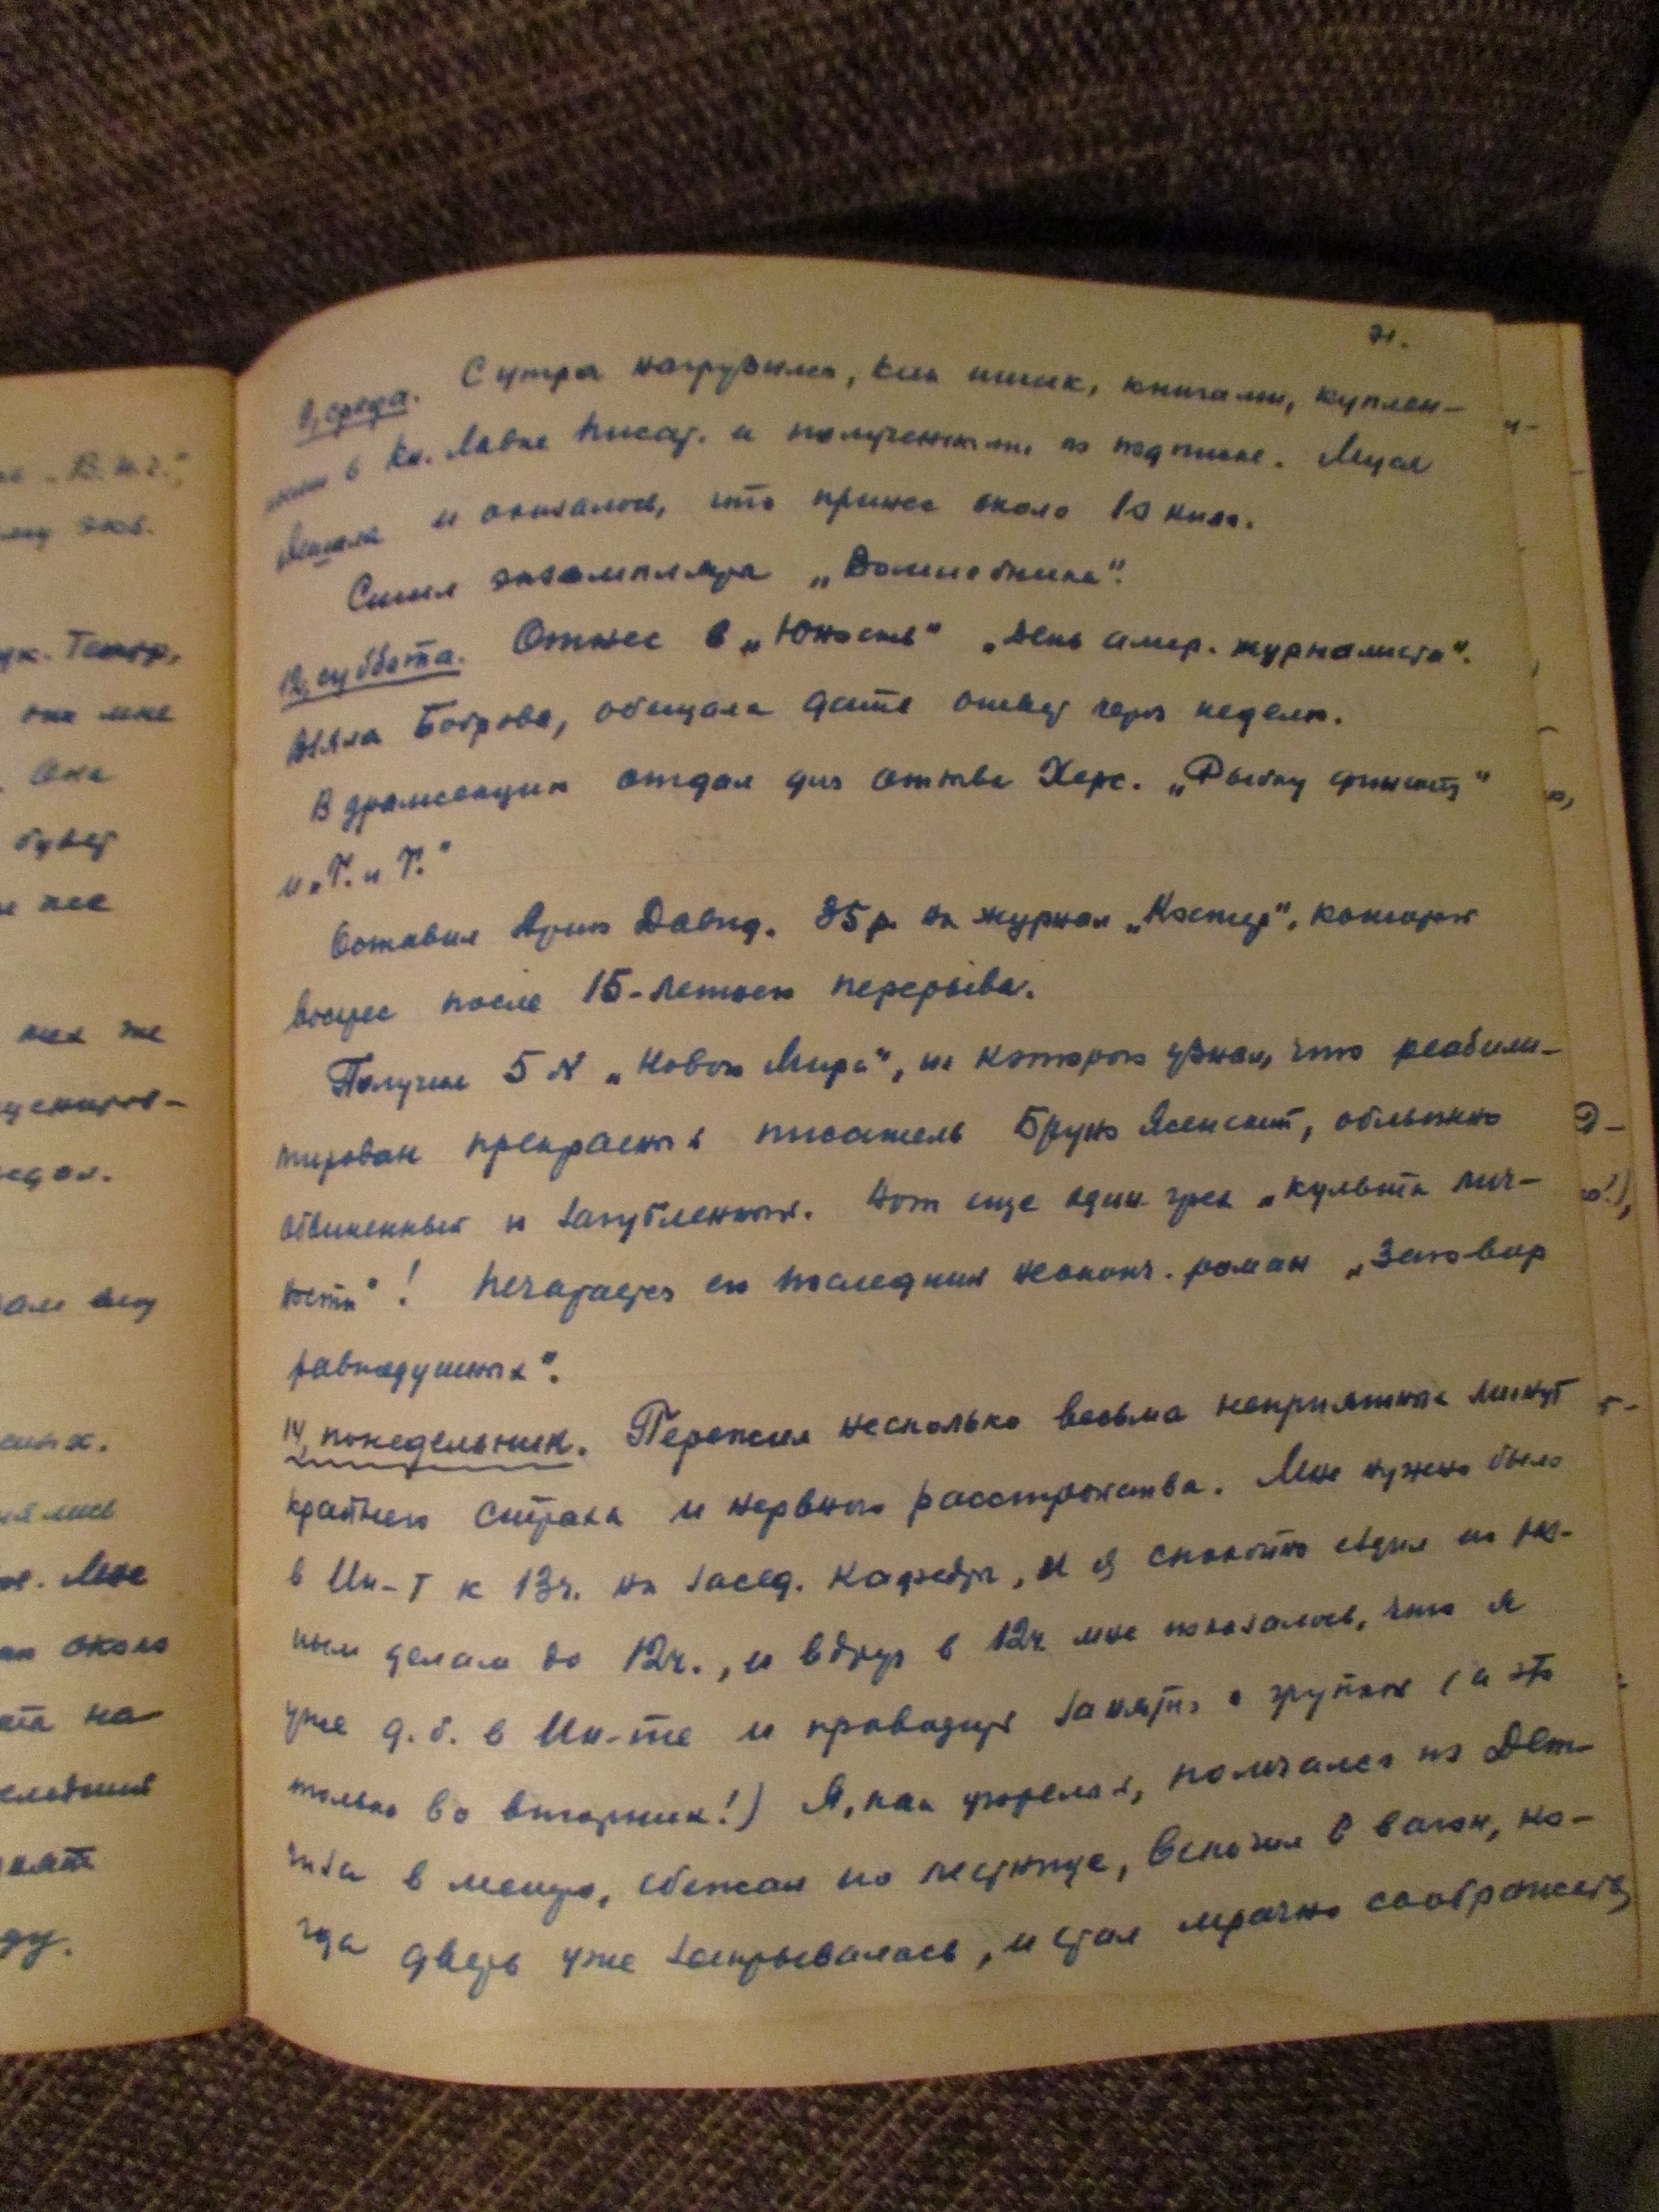 71.
9, среда. С утра нагрузился, как ишак, книгами, куплен-
ными в Кн. Лавке Писат. и полученными по подписке. Муся
и оказалось, что принес около 10 кило.
Сшил экземпляра „Волшебника".
12, суббота. Отнес в „Юность" „День амер. журналиста".
Взяла Боброва, обещала дать ответ через неделю.
В драмсекции отдал для отзыва Херс. „Рыбку финты"
и „Т. и Т."
Оставил Давид. 35 р. на журнал „Костер", который
воскрес после 15-летнего перерыва.
Получил 5 N „Нового Мира", из которого узнал, что реабили-
тирован прекрасный писатель Бруно Ясенский, облыжно
обвиненный и загубленный. Вот еще один грех „культа лич-
ности"! Печатается его последний неоконч. роман „Заговор
равнодушных".
14, понедельник. Пережил несколько весьма неприятных минут
крайнего страха и нервного расстройства. Мне нужно было
в Ин-т к 13ч. на засед. кафедры, и я спокойно ездил по раз-
ным делам до 12ч., и вдруг в 12ч. мне показалось, что я
уже д. б. в Ин-те и проводить занятия с группой (а это
только во вторник!) Я, как угорелый, помчался из Дет-
гиза в метро, сбежал по лестнице, вскочил в вагон, ко-
гда дверь уже закрывалась, и стал мрачно соображать,